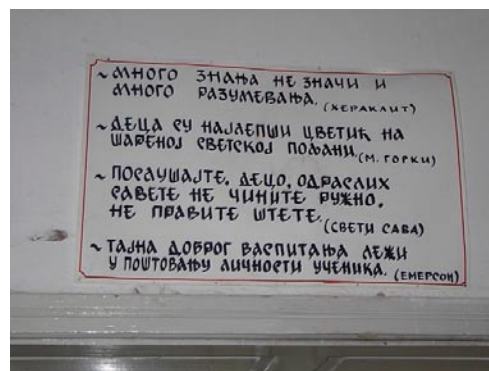 ~ МНОГО ЗНАЊА НЕ ЗНАЧИ И
МНОГО РАЗУМЕВАЊА. (ХЕРАКЛИТ)
~ ДЕЦА СУ НАЈЛЕПШИ ЦВЕТИЋ НА
ШАРЕНОЈ СВЕТСКОЈ ПОЉАНИ. (М. ГОРКИ)
~ ПОСЛУШАЈТЕ, ДЕЦО, ОДРАСЛИХ
САВЕТЕ НЕ ЧИНИТЕ РУЖНО,
НЕ ПРАВИТЕ ШТЕТЕ. (СВЕТИ САВА)
~ ТАЈНА ДОБРОГ ВАСПИТАЊА ЛЕЖИ
У ПОШТОВАЊУ ЛИЧНОСТИ УЧЕНИКА. (ЕМЕРСОН)